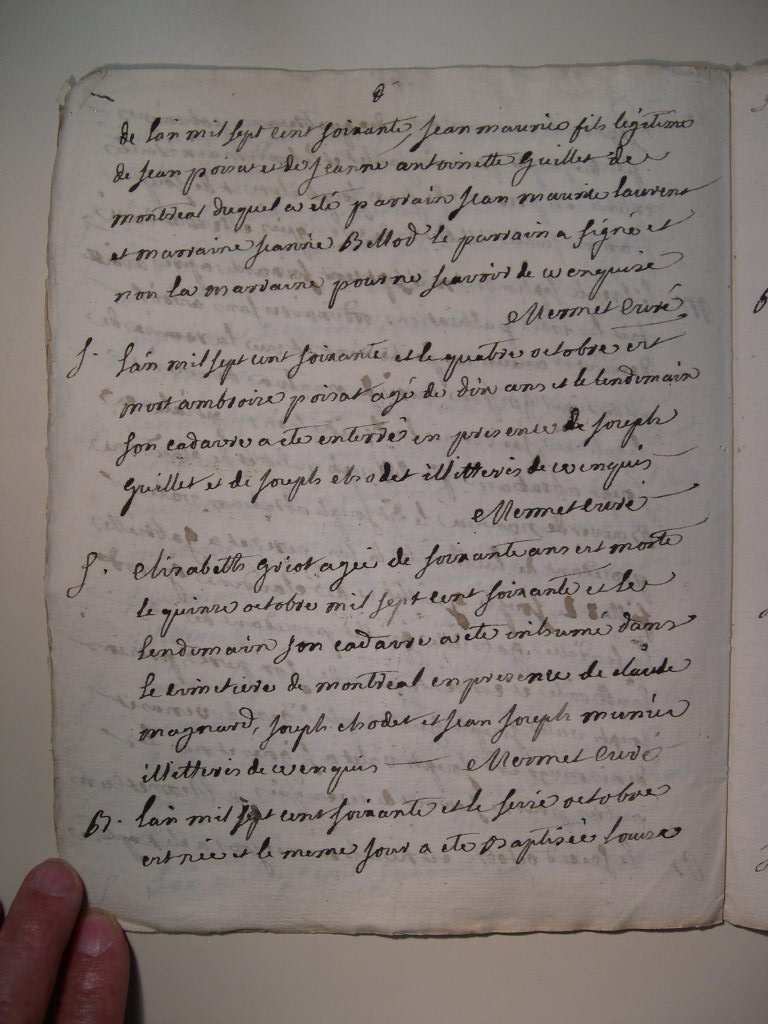 de lan mil sept cent soixante, Jean maurice fils légitime
de Jean poizat et de Jeanne antoinette Guillet de
montreal duquel a eté parrain Jean maurice laurent
et marraine Jeanne Bellod le parrain a signé et
non la marraine pour ne scavoir de ce enquise
Mermet Curé
S. lan mil sept cent soixante et le quatre octobre est
mort ambroise poizat agé de dix ans et le lendemain
son cadavre a ete enterré en presence de Joseph
Guillet et de Joseph chodet illitterés de ce enquis
Mermet Curé
S. Elizabeth Griot agée de soixante ans est morte
le quinze octobre mil sept cent soixante et le
lendemain son cadavre a ete inhumé dans
le cimetiere de montreal en presence de claude
magnard, Joseph chodet et Jean Joseph munier
illitterés de ce enquis Mermet Curé
B. lan mil sept cent soixante et le seize octobre
est née et le meme jour a ete Baptisée louise